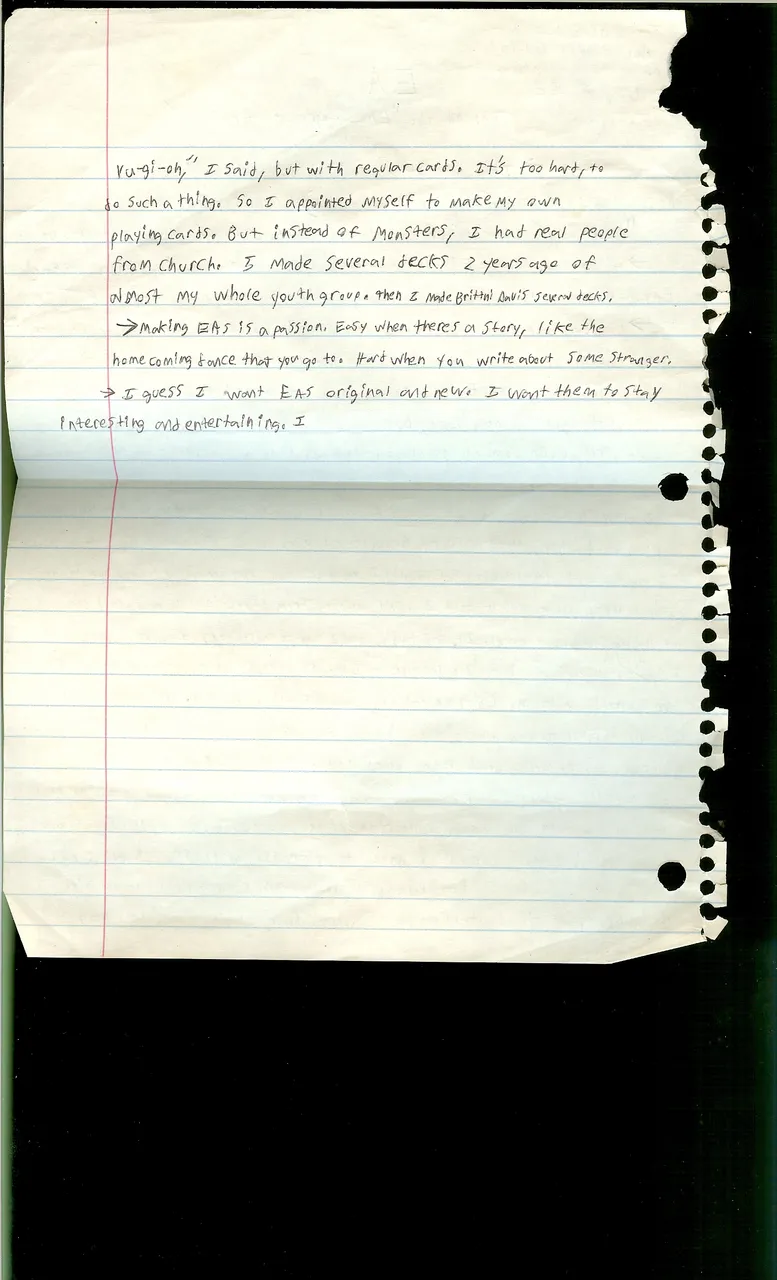 Yu-gi-oh," I said, but with regular cards. It's too hard, to
do such a thing. So I appointed myself to make my own
playing cards. But instead of monsters, I had real people
from church. I made several decks 2 years ago of
almost my whole youth group. then I made Brittni Davis several decks.
→ Making EAS is a passion. Easy when theres a story, like the
homecoming dance that you go to. Hard when you write about some stranger.
→ I guess I want EAS original and new. I want them to stay
interesting and entertaining. I